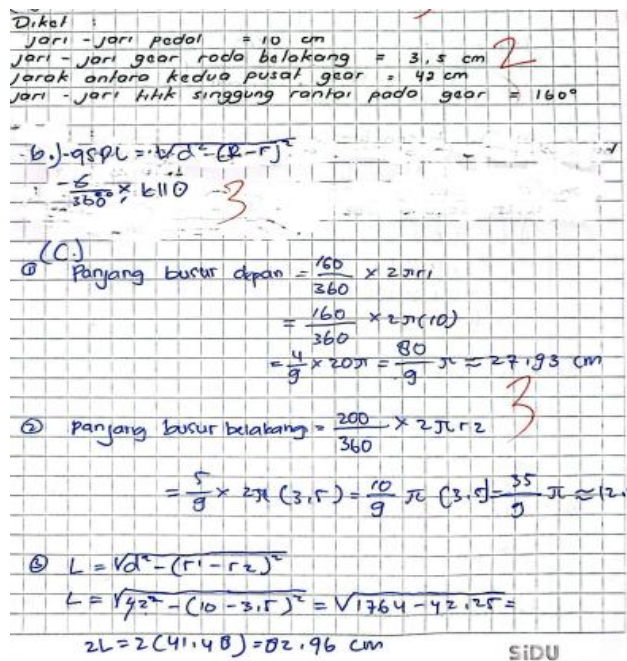 Diket :
jari - jari pedal = 10 cm
jari - jari gear roda belakang = 3,5 cm 2
jarak antara kedua pusat gear = 42 cm
jari - jari titik singgung rantai pada gear = 160°
b.) - gspl = √d²-(R-r)²
/360° × k110
3
(C.)
① Panjang busur depan = 160/360 × 2πr1
= 160/360 × 2π(10)
= 4/9 × 20π = 80/9 π ≈ 27,93 cm
3
② panjang busur belakang = 200/360 × 2πr2
= 5/9 × 2π (3,5) = 10/9 π (3,5) = 35/9 π ≈ 12.
③ L = √d²-(r1-r2)²
L = √42²-(10-3,5)² = √1764-42,25 =
2L = 2(41,48) = 82,96 cm
SiDU